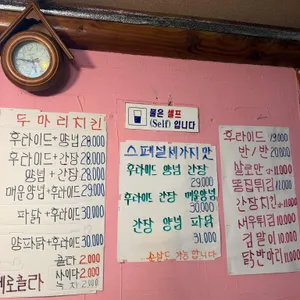 두마리치킨
후라이드+양념 28,000
후라이드+간장 28,000
양념+간장 28,000
매운양념+후라이드 29,000
파닭+후라이드 30,000
양파닭+후라이드 30,000
콜라 2,000
사이다 2,000
제로콜라
물은 셀프
(Self) 입니다
스페셜세가지맛
후라이드 양념 간장
29,000
후라이드 간장 매운양념
30,000
간장 양념 파닭
31,000
후라이드 19,000
반/반 20,000
살로만 11,000
똥집튀김 11,000
간장치킨
새우튀김
김말이 10,000
닭반마리 11,000